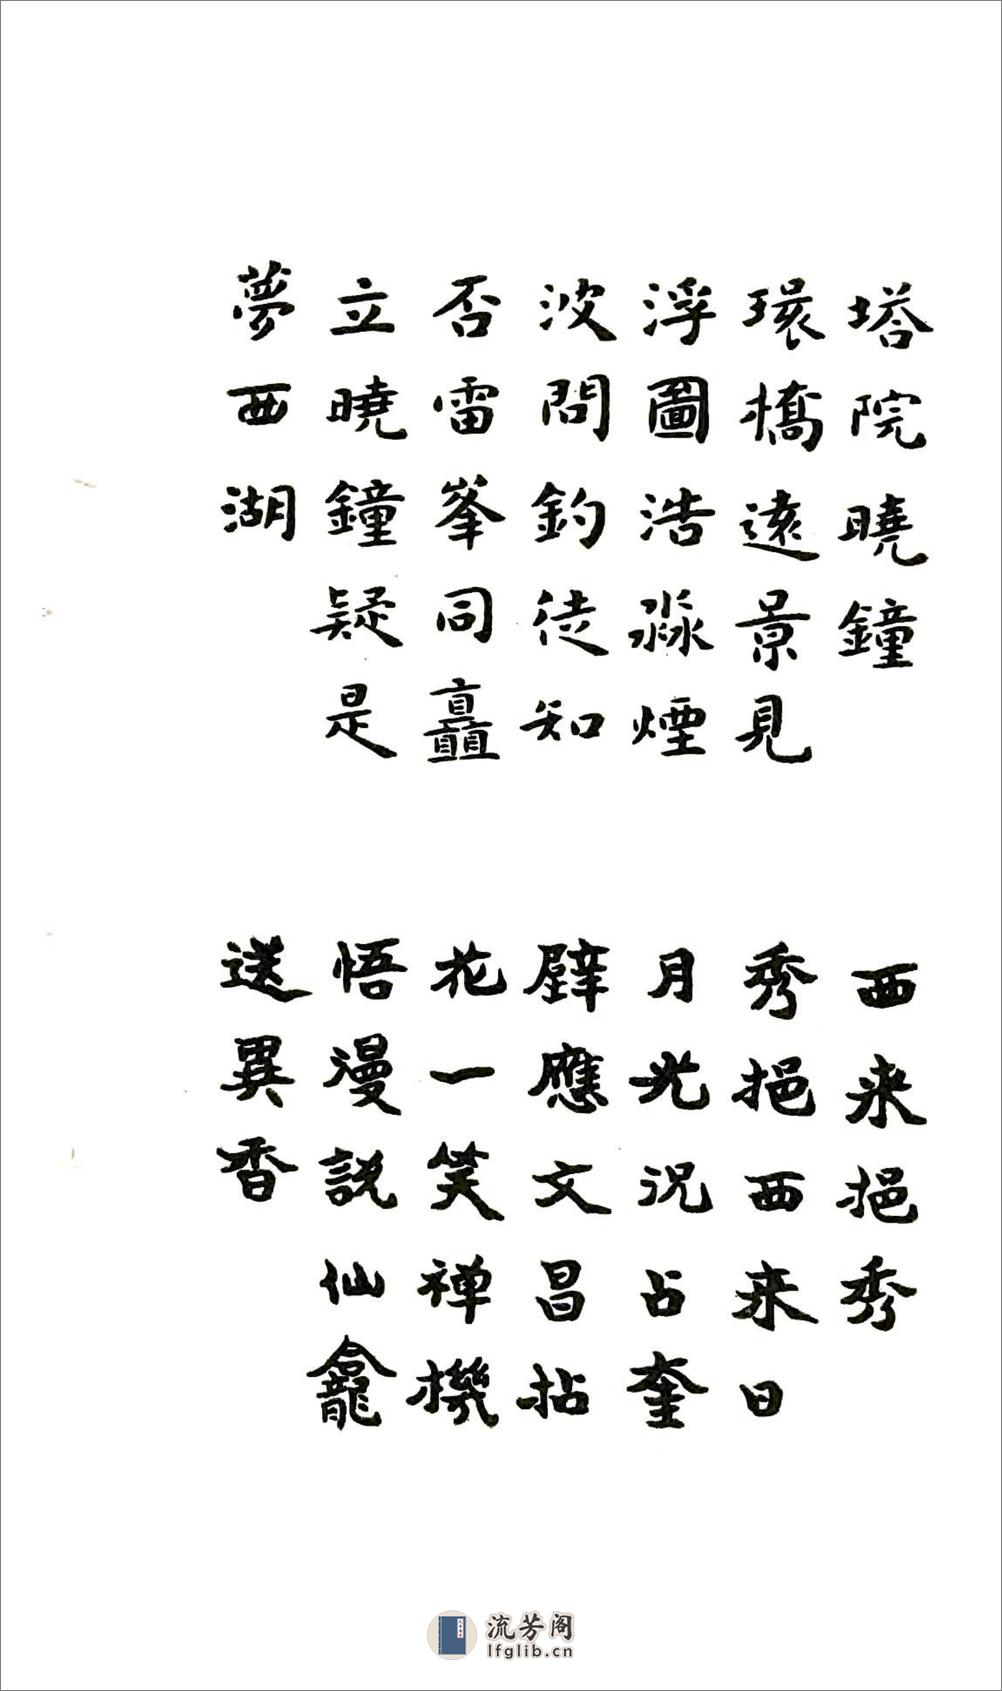 塔院曉鐘
環橋遠景見
浮圖浩淼煙
波問釣徒知
否雷峯同矗
立曉鐘疑是
夢西湖
西来挹秀
秀挹西来日
月光況占奎
壁應文昌拈
花一笑禅機
悟漫説仙龕
送異香
流芳阁
lfglib.cn